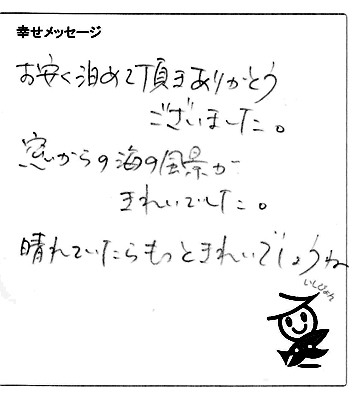 幸せメッセージ
お安く泊めて頂きありがとう
ございました。
窓からの海の風景が
きれいでした。
晴れていたらもっときれいでしょうね